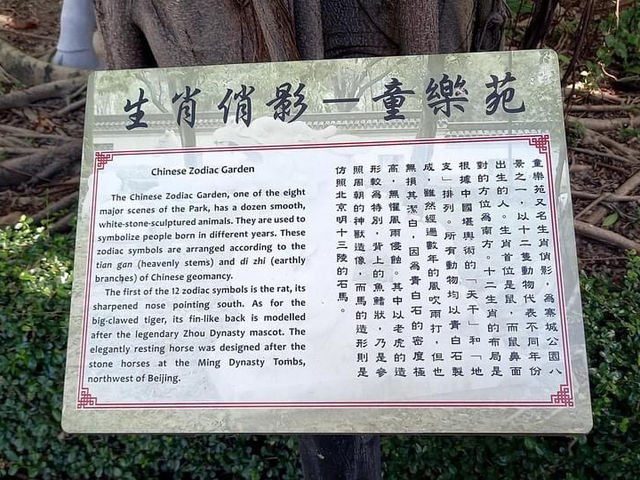 生肖俏影—童樂苑
Chinese Zodiac Garden
The Chinese Zodiac Garden, one of the eight
major scenes of the Park, has a dozen smooth,
white-stone-sculptured animals. They are used to
symbolize people born in different years. These
zodiac symbols are arranged according to the
tian gan (heavenly stems) and di zhi (earthly
branches) of Chinese geomancy.
The first of the 12 zodiac symbols is the rat, its
sharpened nose pointing south. As for the
big-clawed tiger, its fin-like back is modelled
after the legendary Zhou Dynasty mascot. The
elegantly resting horse was designed after the
stone horses at the Ming Dynasty Tombs,
northwest of Beijing.
童樂苑又名生肖俏影，為寨城公園八
景之一，以十二隻動物代表不同年份
出生的人。生肖首位是鼠，而鼠鼻面
對的方位為南方。十二生肖的布局是
根據中國堪輿術的「天干」和「地
支」排列。所有動物均以青白石製
成，雖然經過數年的風吹雨打，但也
無損其潔白，因為青白石的密度極
高，無懼風雨侵蝕。其中以老虎的造
形較為特別，背上的魚鰭狀，乃是參
照周朝的神獸造像，而馬的造形則是
仿照北京明十三陵的石馬。